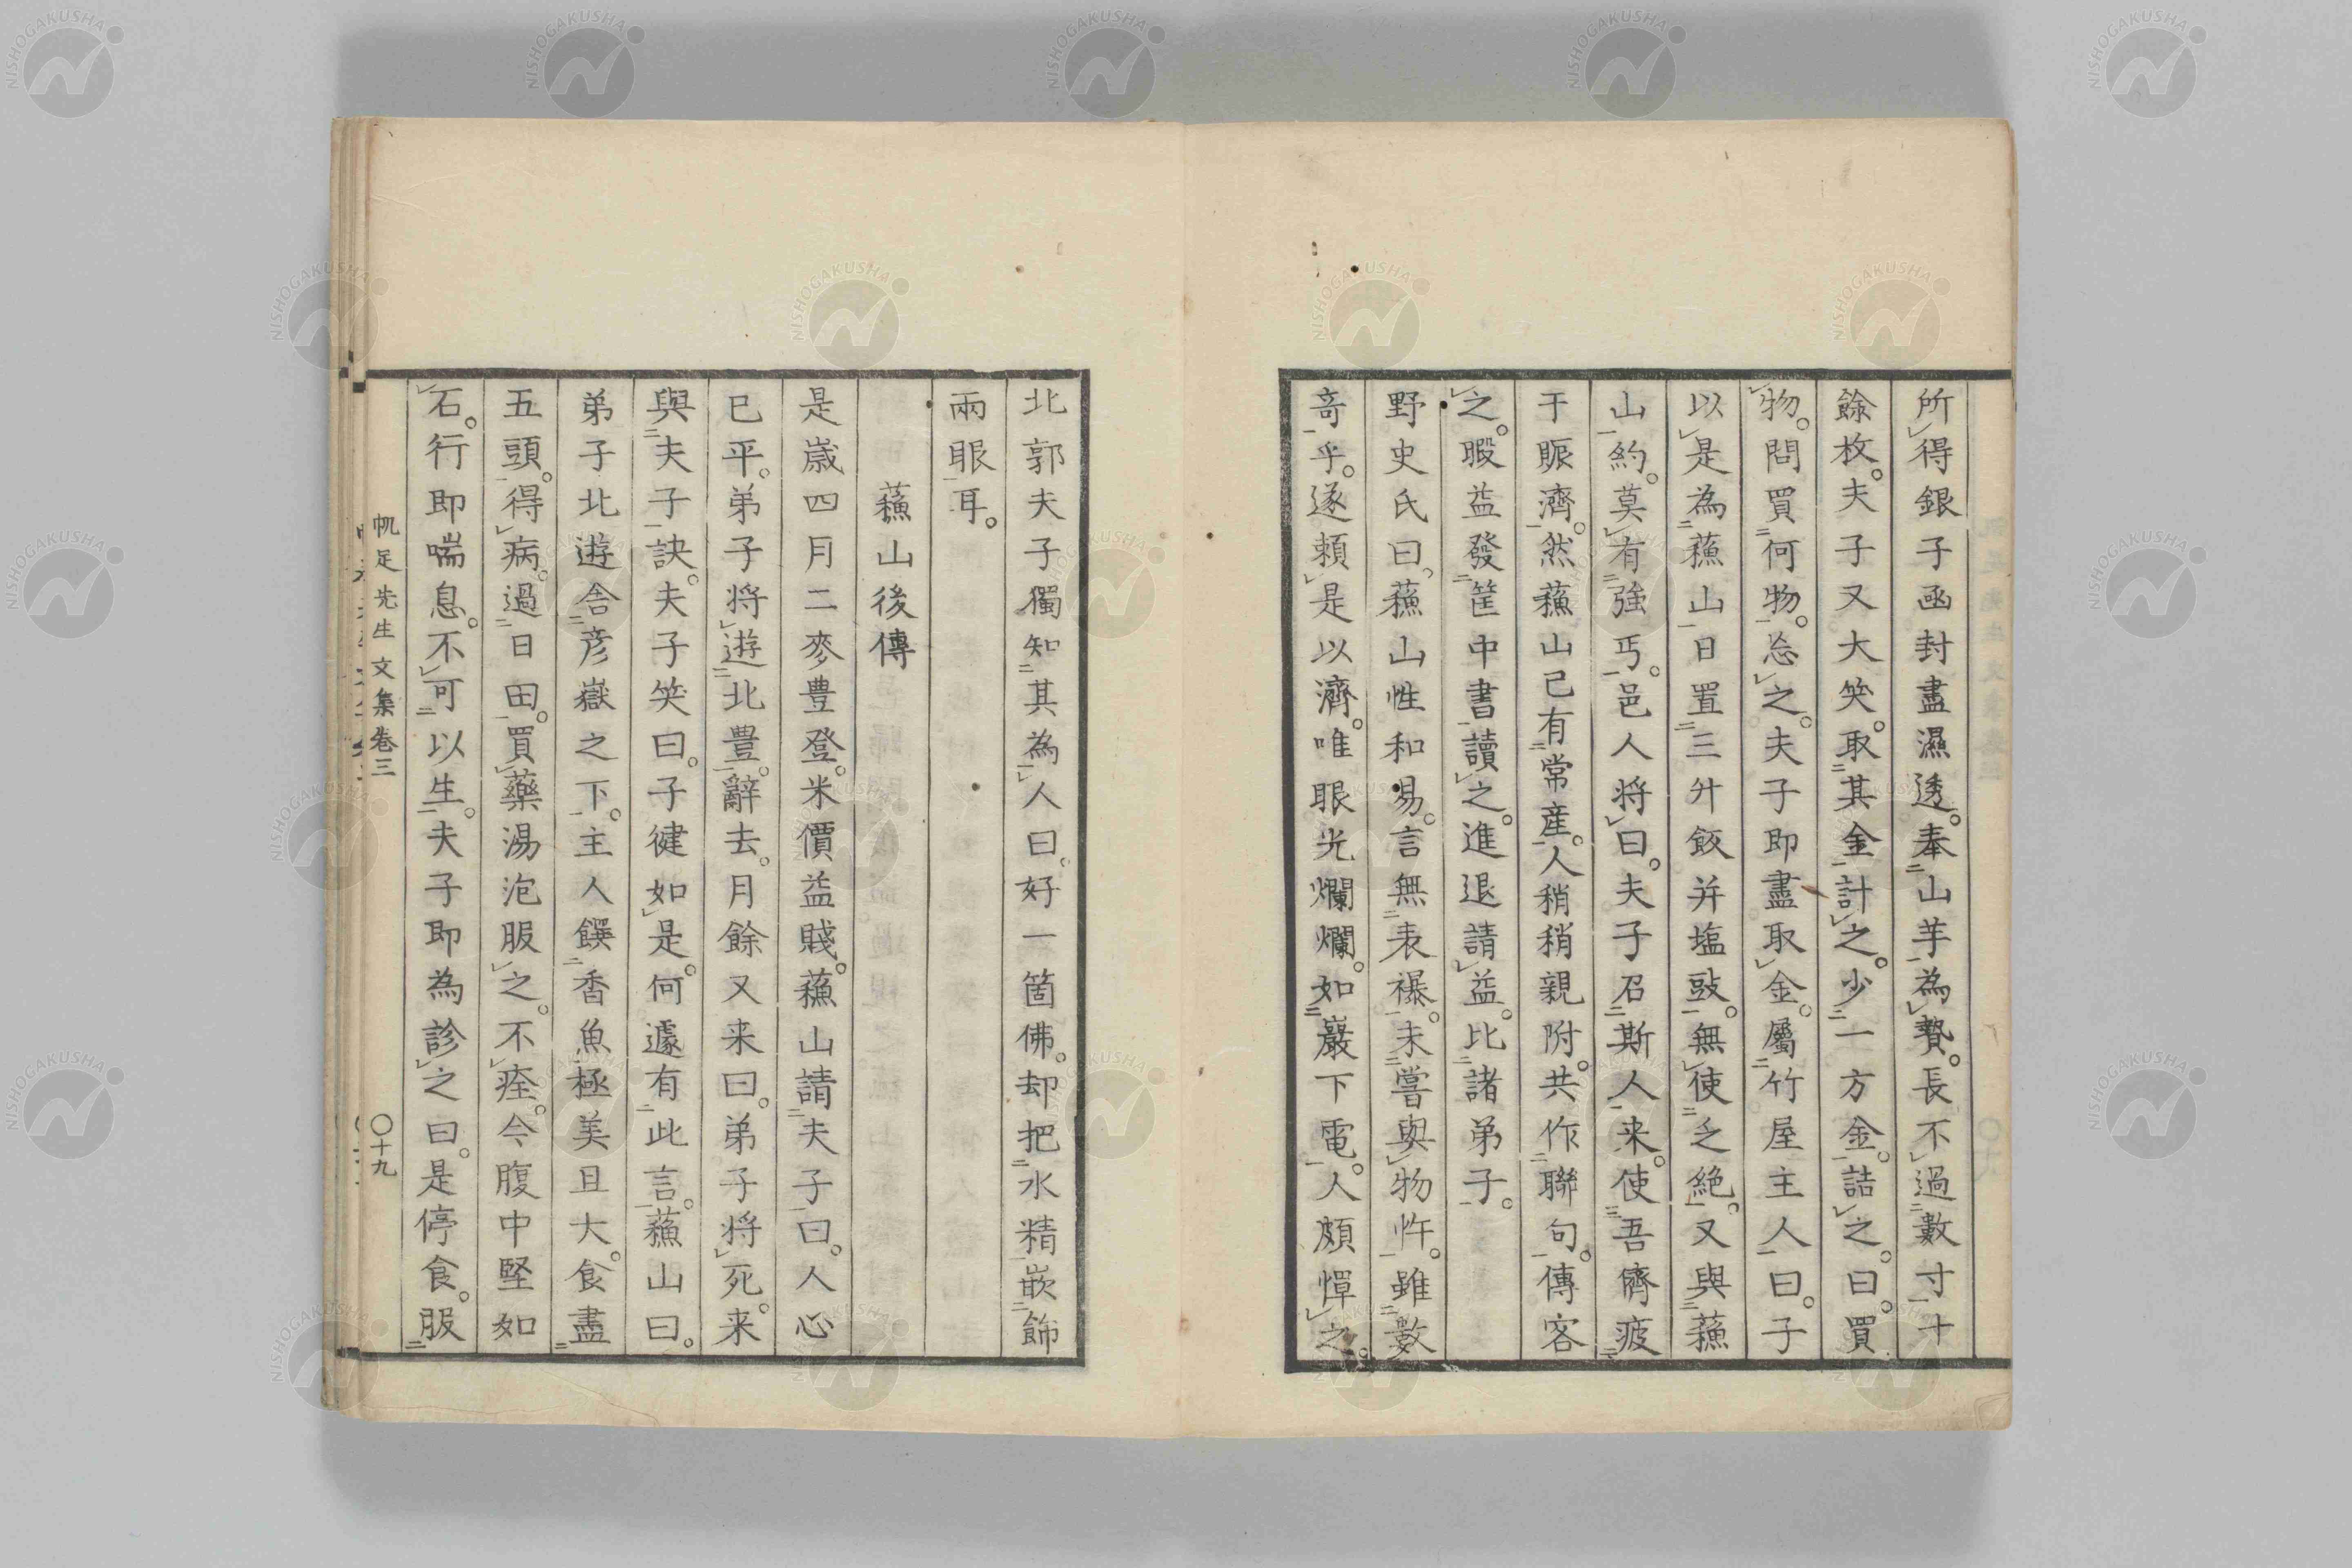 所得銀子函封盡濕透。奉山芋為贄。長不過數寸十
餘枚。夫子又大笑。取其金計之。少一方金。詰之。曰。買
物。問買何物。忘之。夫子即盡取金。屬竹屋主人曰。子
以是為蘓山日置三升飯并塩豉。無使乏絶。又與蘓
山約。莫有強丐。邑人將曰。夫子召斯人来。使吾儕疲
于賑濟。然蘓山已有常産。人稍稍親附。共作聯句。傳客
之。暇益發筐中書讀之。進退請益。比諸弟子。
野史氏曰。蘓山性和易。言無表襮。未嘗與物忤。雖數
奇乎。遂頼是以濟。唯眼光爛爛。如巖下電。人頗憚之。
北郭夫子獨知其為人曰。好一箇佛。却把水精嵌飾
兩眼耳。
蘓山後傳
是歳四月二麥豊登。米價益賤。蘓山請夫子曰。人心
已平。弟子将遊北豊。辭去。月餘又来曰。弟子将死。来
與夫子訣。夫子笑曰。子健如是。何遽有此言。蘓山曰。
弟子北遊舎彦嶽之下。主人饌香魚極美且大。食盡
五頭。得病。過日田。買藥湯泡服之。不痊。今腹中堅如
石。行即喘息。不可以生。夫子即為診之曰。是停食。服
帆足先生文集巻三
〇十九
NISHOGAKUSHA